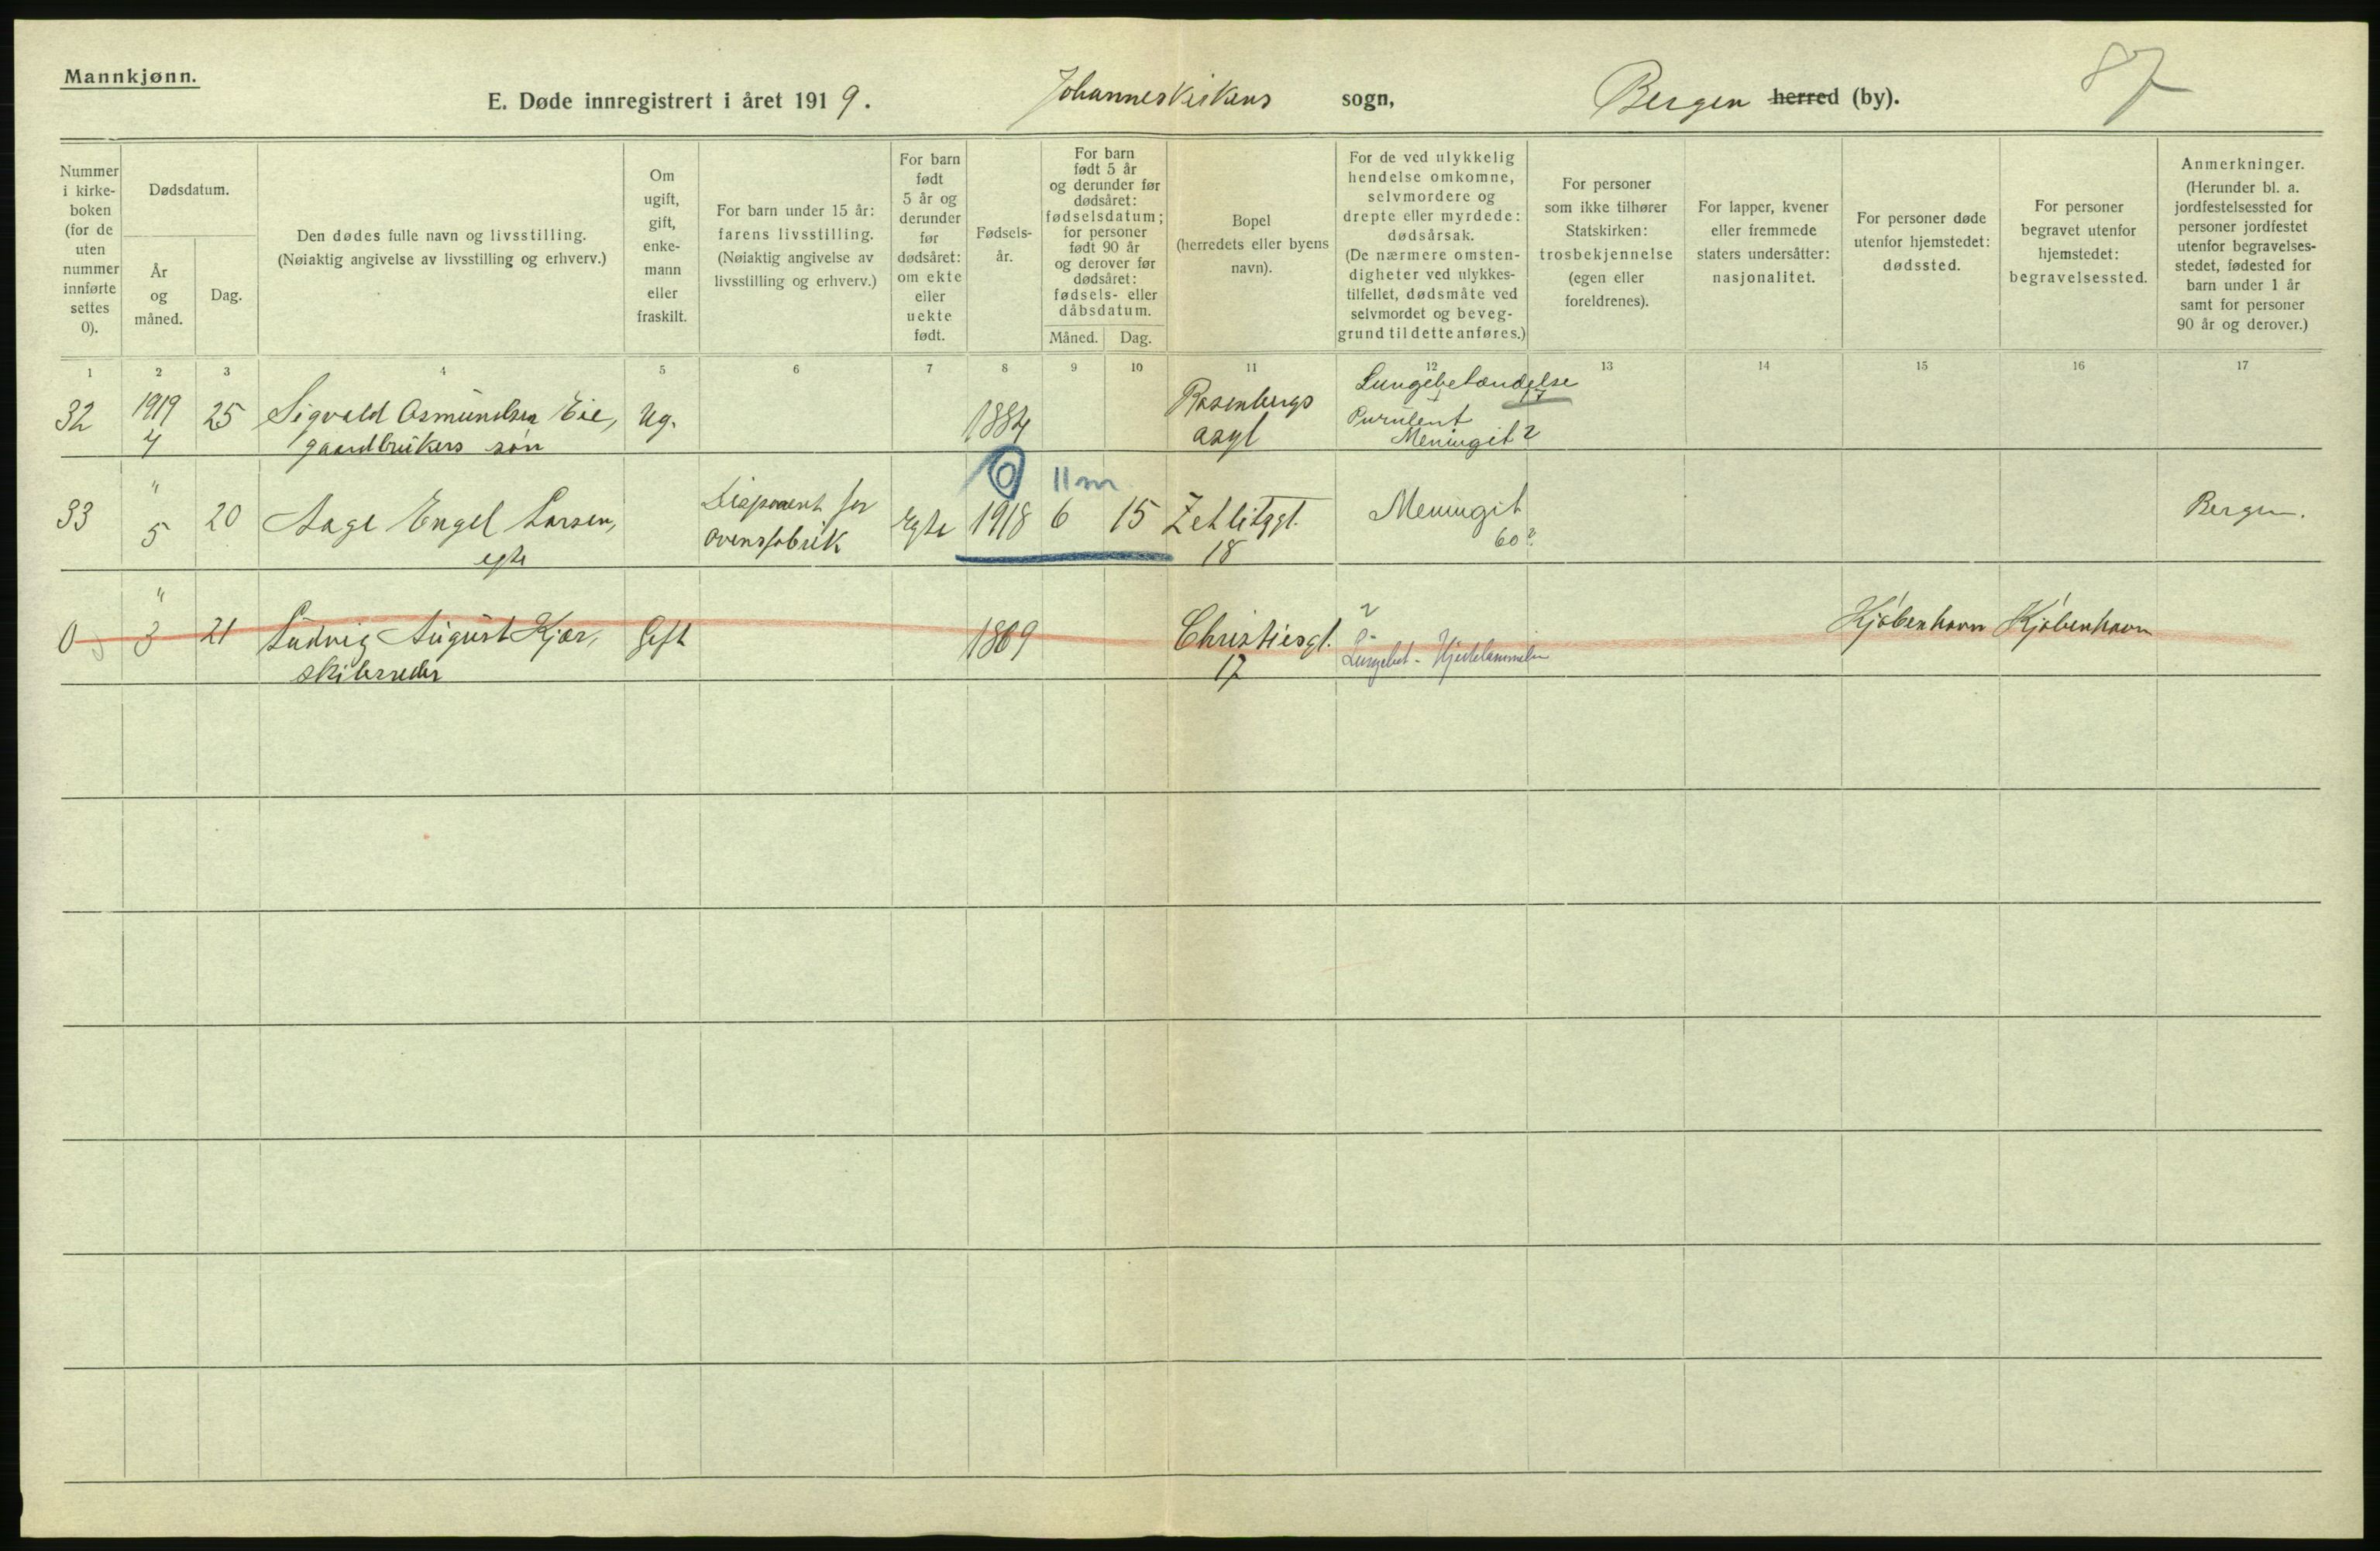 Mannkjønn.
E. Døde innregistrert i året 1919. Johanneskirkens sogn, Bergen herred (by). 87
Nummer
i kirke-
boken
(for de
uten
nummer
innførte
settes
0).
Dødsdatum.
År
og
måned.
Dag.
Den dødes fulle navn og livsstilling.
(Nøiaktig angivelse av livsstilling og erhverv.)
Om
ugift,
gift,
enke-
mann
eller
fraskilt.
For barn under 15 år:
farens livsstilling.
(Nøiaktig angivelse av
livsstilling og erhverv.)
For barn
født
5 år og
derunder
før
dødsåret:
om ekte
eller
uekte
født.
Fødsels-
år.
For barn
født 5 år
og derunder før
dødsåret:
fødselsdatum;
for personer
født 90 år
og derover før
dødsåret:
fødsels- eller
dåbsdatum.
Måned. Dag.
Bopel
(herredets eller byens
navn).
For de ved ulykkelig
hendelse omkomne,
selvmordere og
drepte eller myrdede:
dødsårsak.
(De nærmere omsten-
digheter ved ulykkes-
tilfellet, dødsmåte ved
selvmordet og beveg-
grund til dette anføres.)
For personer
som ikke tilhører
Statskirken:
trosbekjennelse
(egen eller
foreldrenes).
For lapper, kvener
eller fremmede
staters undersåtter:
nasjonalitet.
For personer døde
utenfor hjemstedet:
dødssted.
For personer
begravet utenfor
hjemstedet:
begravelsessted.
Anmerkninger.
(Herunder bl. a.
jordfestelsessted for
personer jordfestet
utenfor begravelses-
stedet, fødested for
barn under 1 år
samt for personer
90 år og derover.)
1 2 3 4 5 6 7 8 9 10 11 12 13 14 15 16 17
32 1919 25 Sigvald Osmundsen Eie, Ug. 1884 Rosenbergs Lungebetændelse
4 gaardbrukers søn asyl Purulent
Meningit
0 11 m
33 " 20 Aage Engel Larsen, Disponent for Egte 1918 6 15 Zetlitzgt. Meningit Bergen.
5 egte ovensfabrik 18 60?
0 " 21 Ludvig August Kjær, Gift 1869 Christiesgt. Kjøbenhavn Kjøbenhavn
3 skibsreder 17 Lungebet - Hjertelammelse